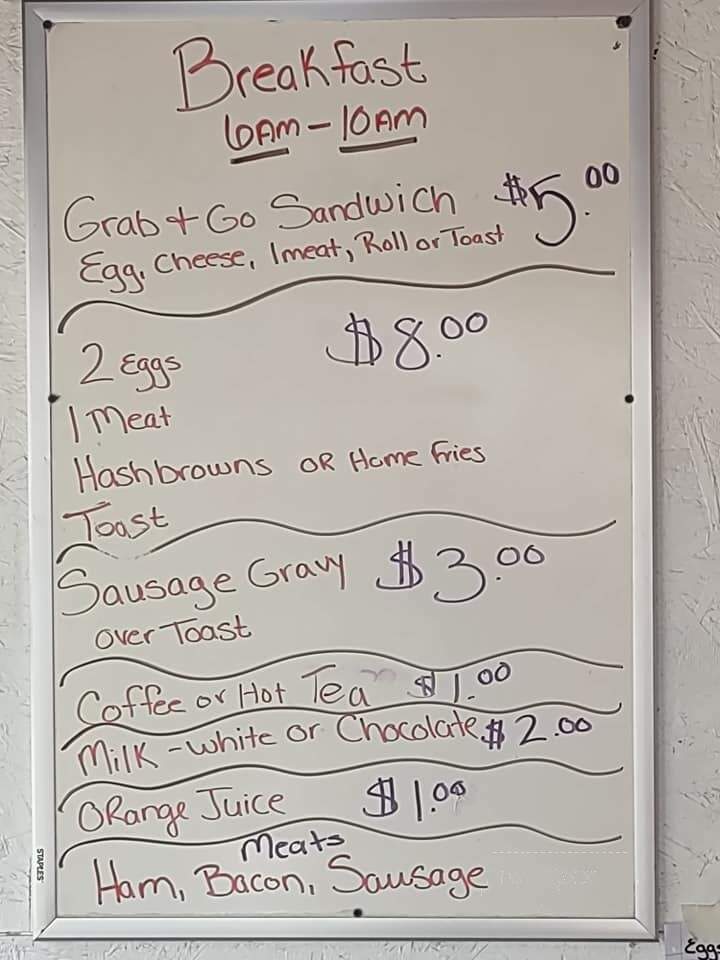 Breakfast
6AM - 10AM
Grab + Go Sandwich $5.00
Egg, Cheese, 1 meat, Roll or Toast
2 Eggs $8.00
1 Meat
Hashbrowns OR Home Fries
Toast
Sausage Gravy $3.00
over Toast
Coffee or Hot Tea $1.00
Milk - White or Chocolate $2.00
Orange Juice $1.00
Meats
Ham, Bacon, Sausage
STAPLES
Eggs